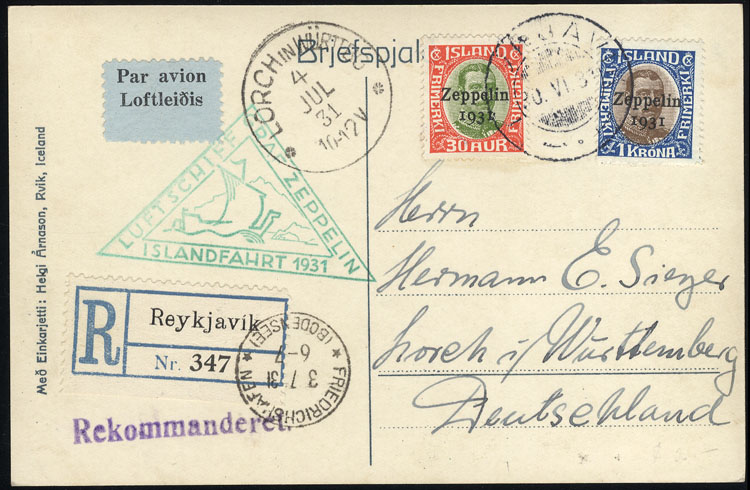 Briefspjal
Par avion
Loftleiðis
LORCH in WÜRTT
4
JUL
31
10-12V
ISLAND
FRIMERKI
Zeppelin
1931
30 AUR
30.VI.31
ISLAND
FRIMERKI
Zeppelin
1931
1 KRÓNA
LUFTSCHIFF GRAF ZEPPELIN
ISLANDFAHRT 1931
Með Einkarjetti: Helgi Árnason, Rvik, Iceland
Herrn
Hermann E. Sieger
Lorch i/ Württemberg
Deutschland
R
Reykjavik
Nr. 347
FRIEDRICHSHAFEN
(BODENSEE)
3.7.31
6-7
Rekommanderet.